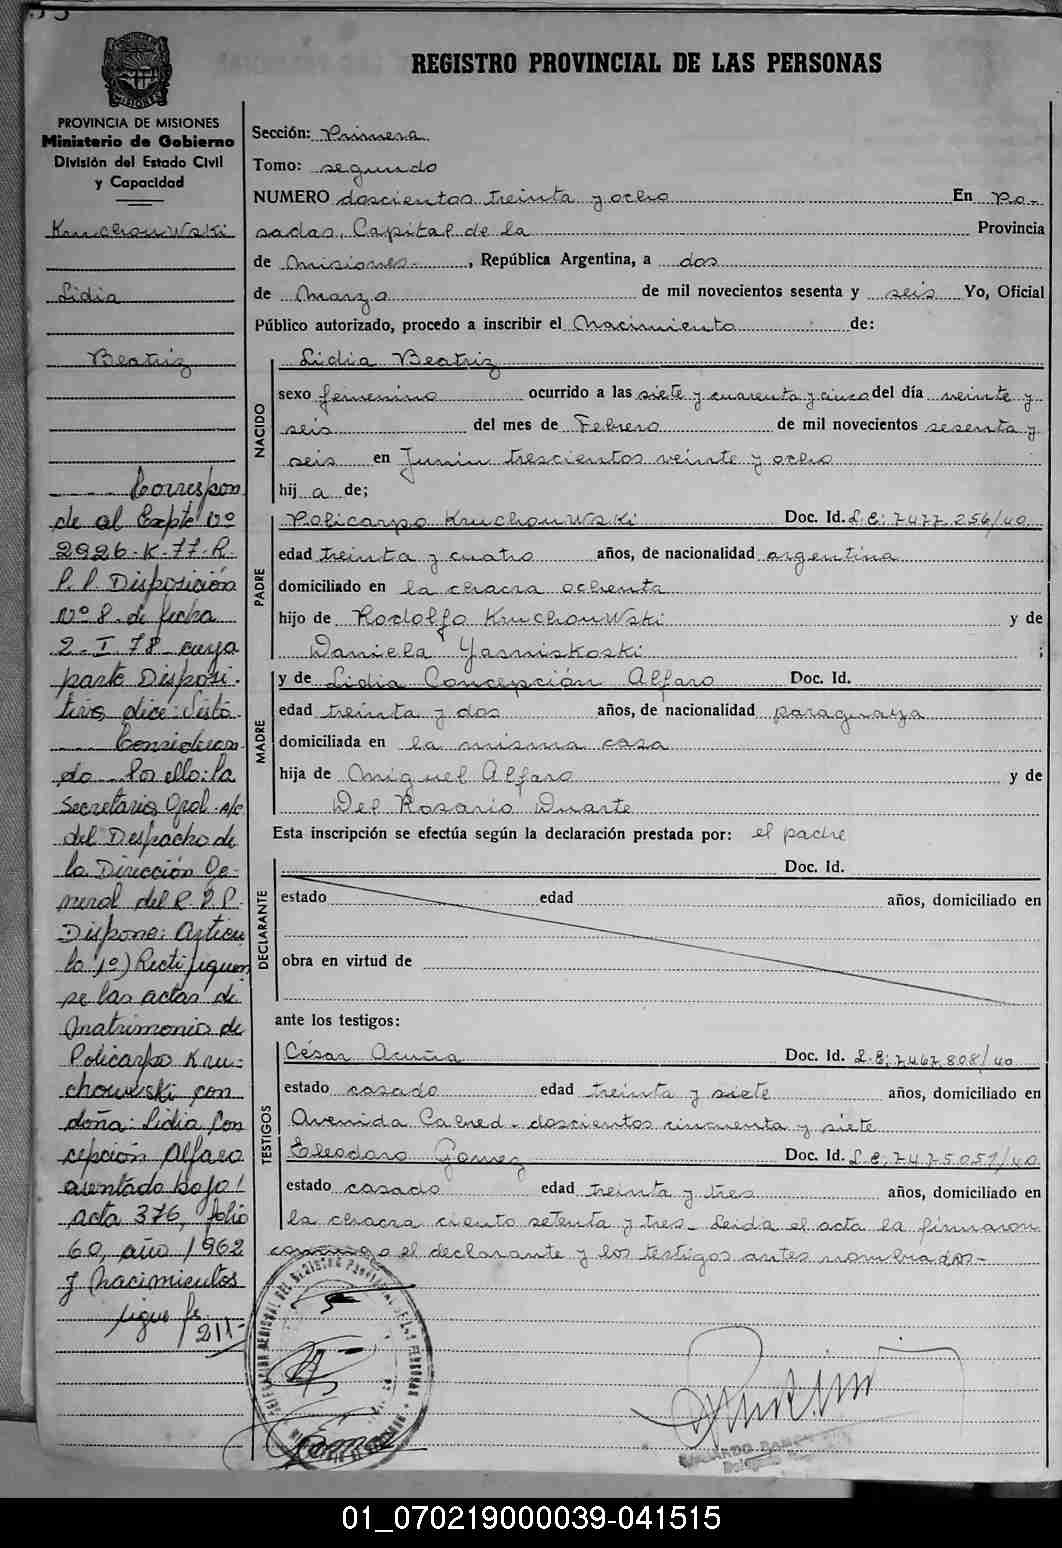 REGISTRO PROVINCIAL DE LAS PERSONAS
PROVINCIA DE MISIONES
Ministerio de Gobierno
División del Estado Civil
y Capacidad
Kruchouwski
Lidia
Beatriz
Correspon
de al Expte Nº
2926-K-77-R.
P. P. Disposición
Nº 8 de fecha
2-I-78 cuya
parte Disposi-
tiva dice: Visto
Consideran
do Por ello: la
Secretaria Gral. a/c
del Despacho de
la Dirección Ge-
neral del R. P. P.
Dispone: Articu
lo 1º) Rectifiquen
se las actas de
Matrimonio de
Policarpo Kru-
chowski con
doña: Lidia Con
cepción Alfaro
asentado bajo
acta 376, folio
60, año 1962
y Nacimientos
sigue fs.
211-
Sección: Primera
Tomo: segundo
NUMERO doscientos treinta y ocho En Po-
sadas, Capital de la Provincia
de Misiones , República Argentina, a dos
de Marzo de mil novecientos sesenta y seis Yo, Oficial
Público autorizado, procedo a inscribir el Nacimiento de:
NACIDO
Lidia Beatriz
sexo femenino ocurrido a las siete y cuarenta y cinco del día veinte y
seis del mes de Febrero de mil novecientos sesenta y
seis en Junin trescientos veinte y ocho
hij a de;
PADRE
Policarpo Kruchouwski Doc. Id. L.E: 7477.256/40
edad treinta y cuatro años, de nacionalidad argentina
domiciliado en la chacra ochenta
hijo de Rodolfo Kruchouwski y de
Daniela Yasniskoski ;
MADRE
y de Lidia Concepción Alfaro Doc. Id.
edad treinta y dos años, de nacionalidad paraguaya
domiciliada en la misma casa
hija de Miguel Alfaro y de
Del Rosario Duarte
Esta inscripción se efectúa según la declaración prestada por: el padre
DECLARANTE
Doc. Id.
estado edad años, domiciliado en
obra en virtud de
ante los testigos:
TESTIGOS
César Acuña Doc. Id. L.E: 7467.808/40
estado casado edad treinta y siete años, domiciliado en
Avenida Cabred doscientos cincuenta y siete
Eleodoro Gómez Doc. Id. L.E: 7475.051/40
estado casado edad treinta y tres años, domiciliado en
la chacra ciento setenta y tres- Leida el acta la firmaron
conmigo el declarante y los testigos antes nombrados-
01_070219000039-041515